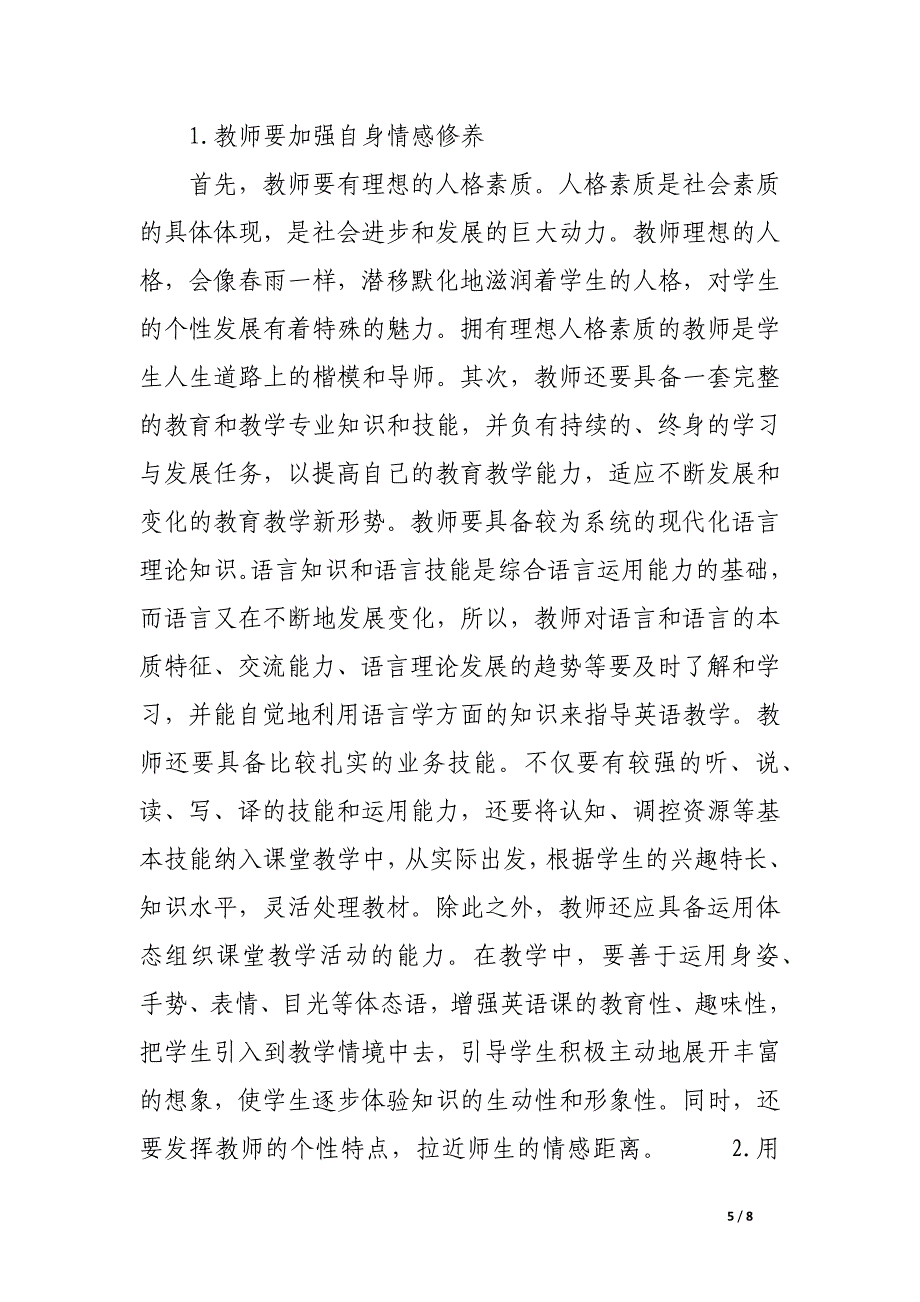 1.教师要加强自身情感修养
首先，教师要有理想的人格素质。人格素质是社会素质
的具体体现，是社会进步和发展的巨大动力。教师理想的人
格，会像春雨一样，潜移默化地滋润着学生的人格，对学生
的个性发展有着特殊的魅力。拥有理想人格素质的教师是学
生人生道路上的楷模和导师。其次，教师还要具备一套完整
的教育和教学专业知识和技能，并负有持续的、终身的学习
与发展任务，以提高自己的教育教学能力，适应不断发展和
变化的教育教学新形势。教师要具备较为系统的现代化语言
理论知识。语言知识和语言技能是综合语言运用能力的基础，
而语言又在不断地发展变化，所以，教师对语言和语言的本
质特征、交流能力、语言理论发展的趋势等要及时了解和学
习，并能自觉地利用语言学方面的知识来指导英语教学。教
师还要具备比较扎实的业务技能。不仅要有较强的听、说、
读、写、译的技能和运用能力，还要将认知、调控资源等基
本技能纳入课堂教学中，从实际出发，根据学生的兴趣特长、
知识水平，灵活处理教材。除此之外，教师还应具备运用体
态组织课堂教学活动的能力。在教学中，要善于运用身姿、
手势、表情、目光等体态语，增强英语课的教育性、趣味性，
把学生引入到教学情境中去，引导学生积极主动地展开丰富
的想象，使学生逐步体验知识的生动性和形象性。同时，还
要发挥教师的个性特点，拉近师生的情感距离。 2.用
5 / 8